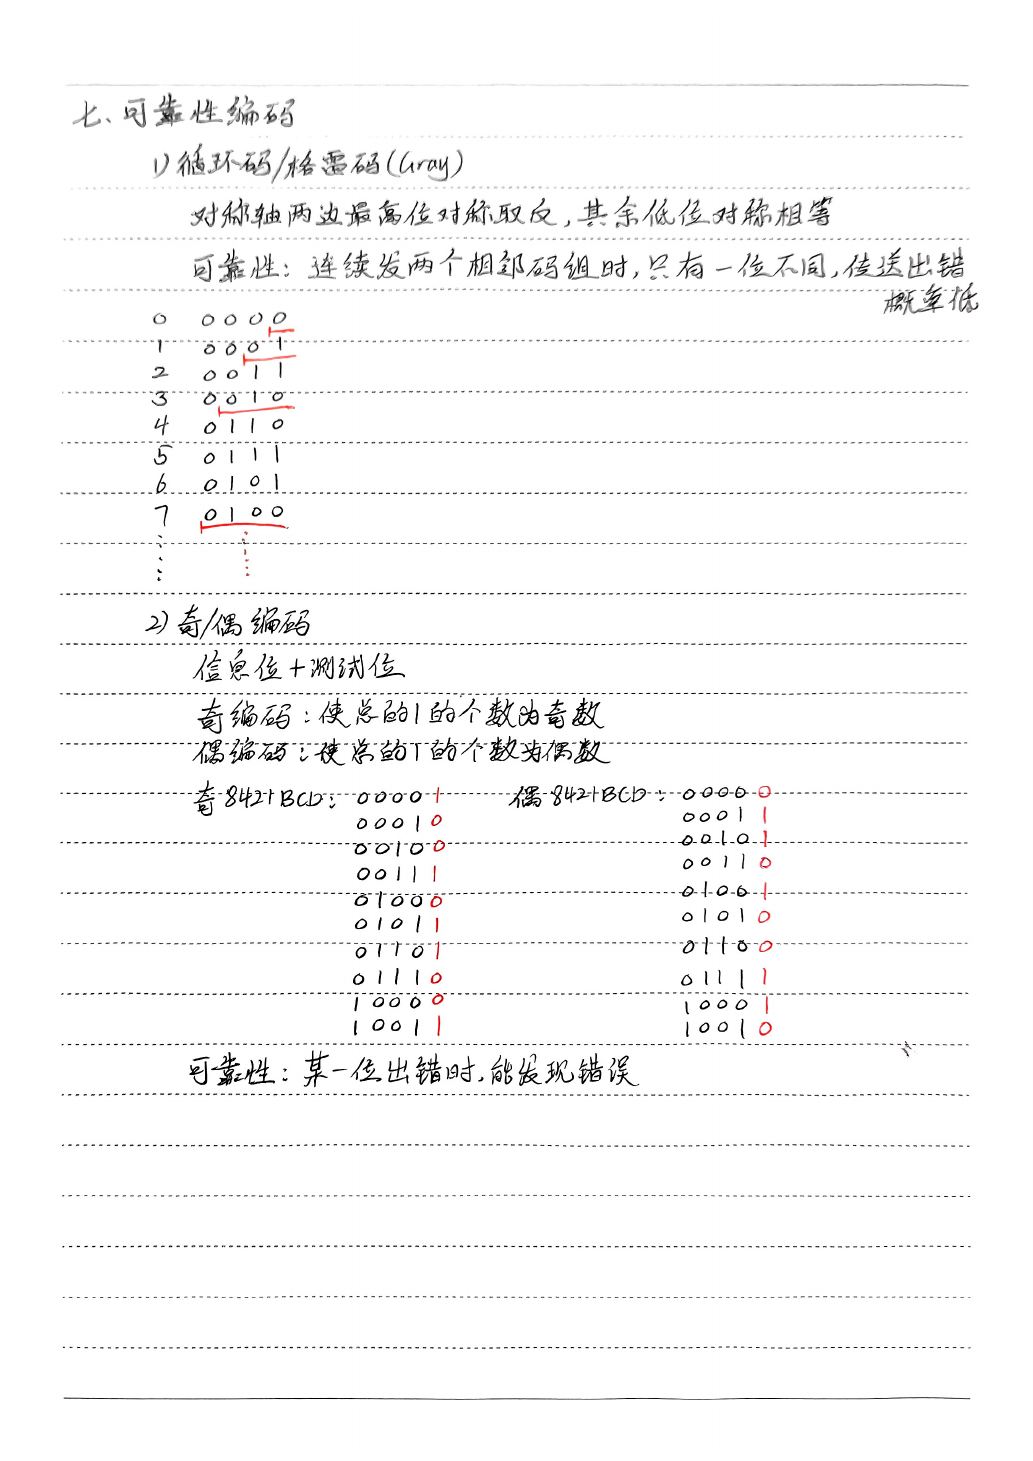 七、可靠性编码
1) 循环码/格雷码(Gray)
对称轴两边最高位对称取反,其余低位对称相等
可靠性:连续发两个相邻码组时,只有一位不同,传送出错
概率低
0 0000
1 0001
2 0011
3 0010
4 0110
5 0111
6 0101
7 0100
2) 奇/偶编码
信息位+测试位
奇编码:使总的1的个数为奇数
偶编码:使总的1的个数为偶数
奇8421BCD: 00001 偶8421BCD: 00000
00010 00011
00100 00101
00111 00110
01000 01001
01011 01010
01101 01100
01110 01111
10000 10001
10011 10010
可靠性:某一位出错时,能发现错误